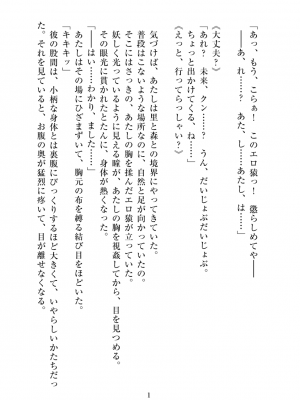 「あっ、もう、こらぁ！　このエロ猿っ！　懲らしめてや――
――あ、あれ、あたし……？　し――あたし、は……」
《大丈夫？》
「あれ？　未来、クン……？　うん、だいじょぶだいじょぶ。
ちょっと出かけてくるね、て……」
《えっと、行ってらっしゃい？》
気づけば、あたしは里と森との境界にやってきていた。
普段はこないような場所なのに、自然と足が向かっていた。
そこにはさっきの、あたしの胸を揉んだエロ猿が立っていた。
妖しく光っているように見える瞳が、あたしの胸を視姦してから、目を見つめる。
その眼光に貫かれたとたんに、身体が熱くなった。
「――はい……わかり、ました……」
あたしはその場にひざまずいて、胸元の布を縛る結び目をほどいた。
「キキキッ」
彼の股間は、小柄な身体とは裏腹にびっくりするほど大きくて、いやらしいかたちだっ
た。それを見ていると、お腹の奥が猛烈に疼いて、目が離せなくなる。
1